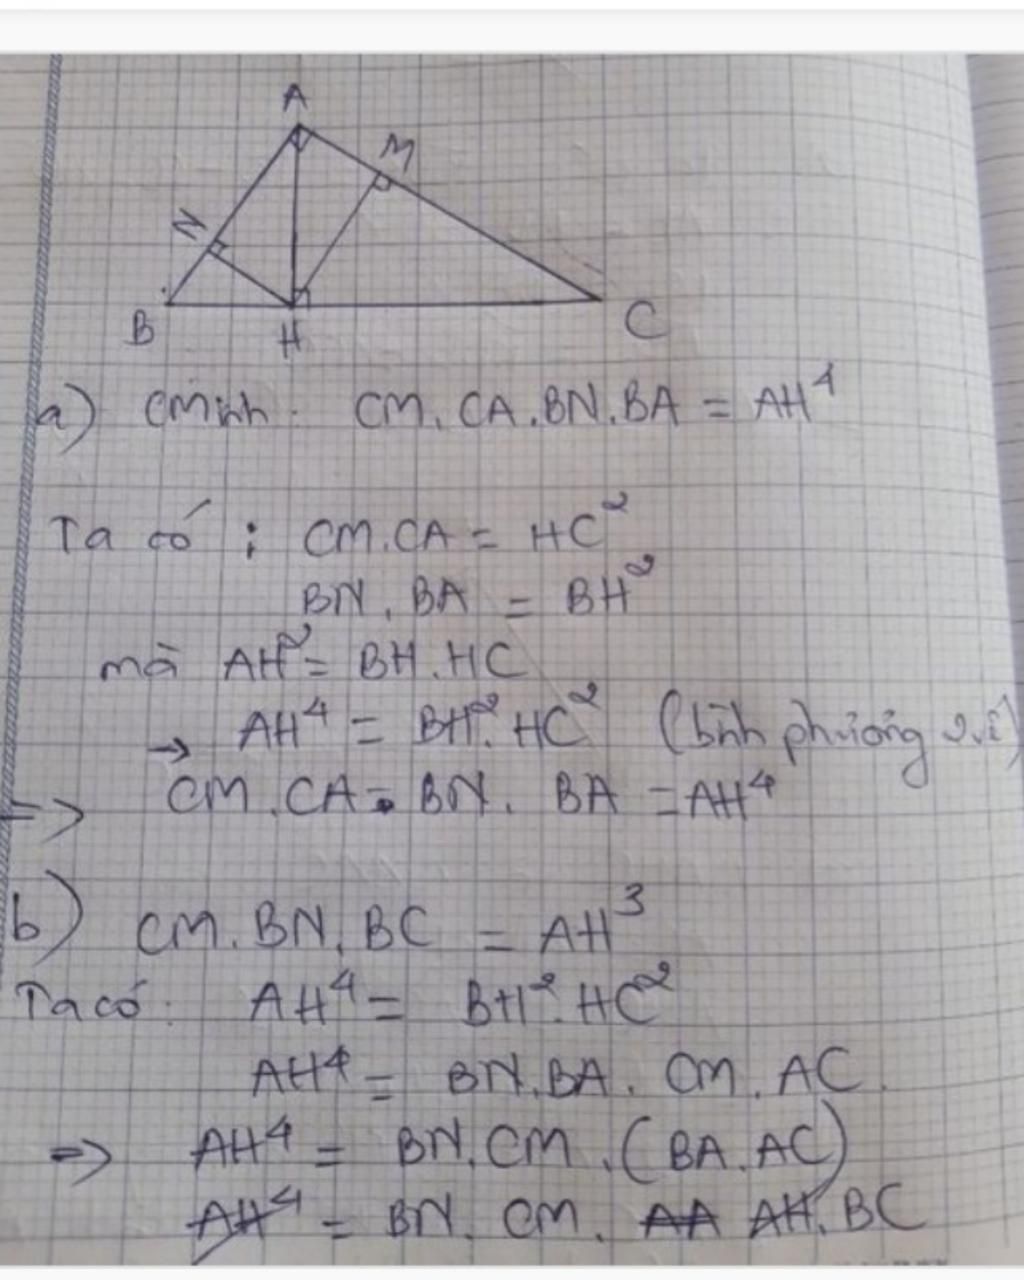 A
M
N
B
H
C
a) CMinh: CM.CA.BN.BA = AH⁴
Ta có: CM.CA = HC²
BN.BA = BH²
mà AH² = BH.HC
→ AH⁴ = BH².HC² (bình phương 2 vế)
=> CM.CA.BN.BA = AH⁴
b) CM.BN.BC = AH³
Ta có: AH⁴ = BH².HC²
AH⁴ = BN.BA.CM.AC.
=> AH⁴ = BN.CM.(BA.AC)
AH⁴ = BN.CM. AH.BC